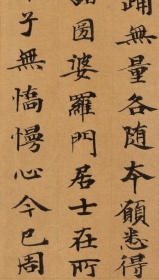 踊無量各随夲願悉得
國婆羅門居士在所
子無憍慢心今已周